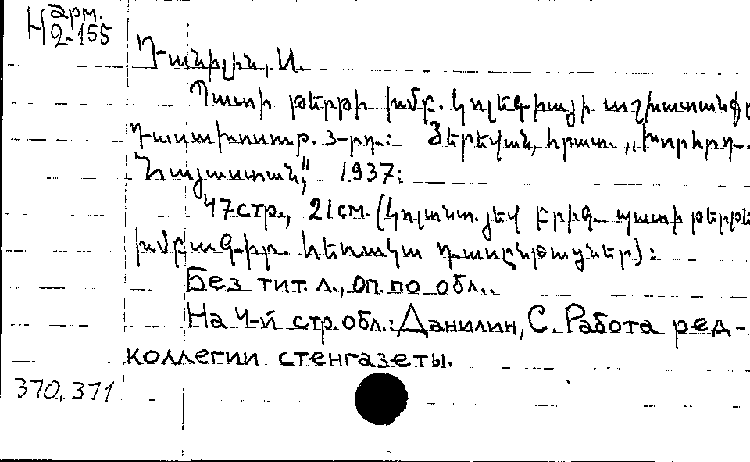 Н арм.
2-155
Դանիլին, Ս.
Պատի թերթի խմբ. կոլեգիայի աշխատանքը
Դասախոսութ. 3-րդ: Յերեվան, հրատ. „Խորհրդ.
Հայաստան", 1937:
47 стр., 21 см. (Կոլտնտ. յեվ բրիգ. պատի թերթե
խմբագիր. հեռակա դասընթացներ):
Без тит. л., оп. по обл..
На 4-й стр. обл.: Данилин, С. Работа ред-
коллегии стенгазеты.
370,371